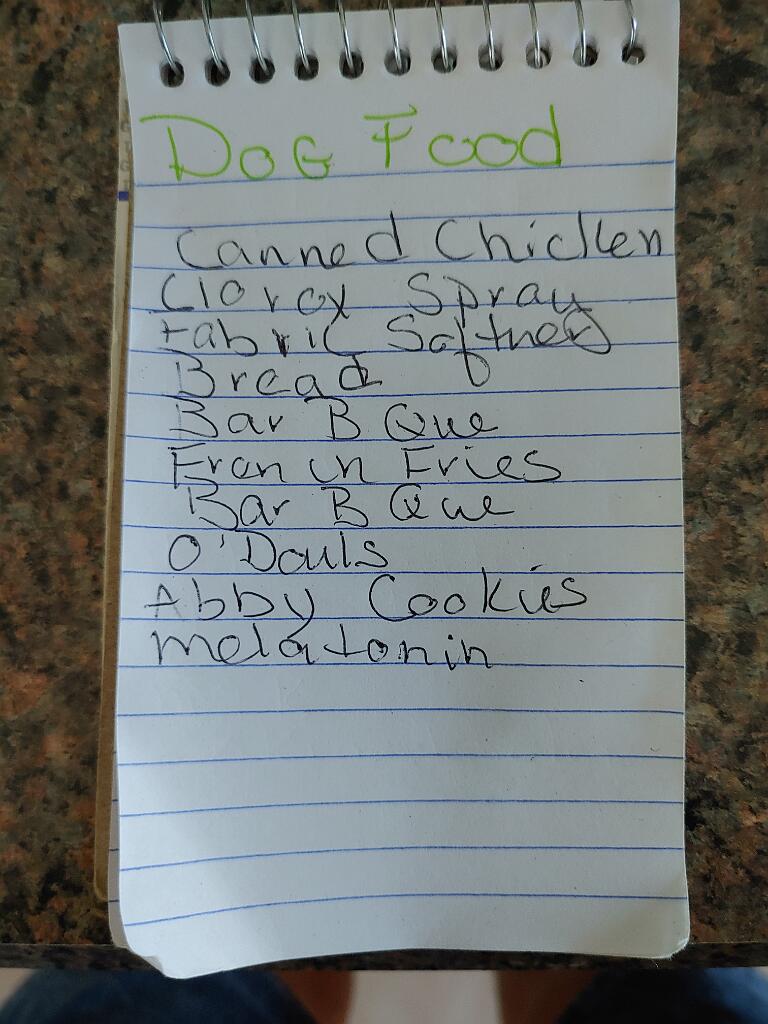 Dog Food
Canned Chicken
Clorox Spray
Fabric Softner
Bread
Bar B Que
Franch Fries
Bar B Que
O'Douls
Abby Cookies
Melatonin